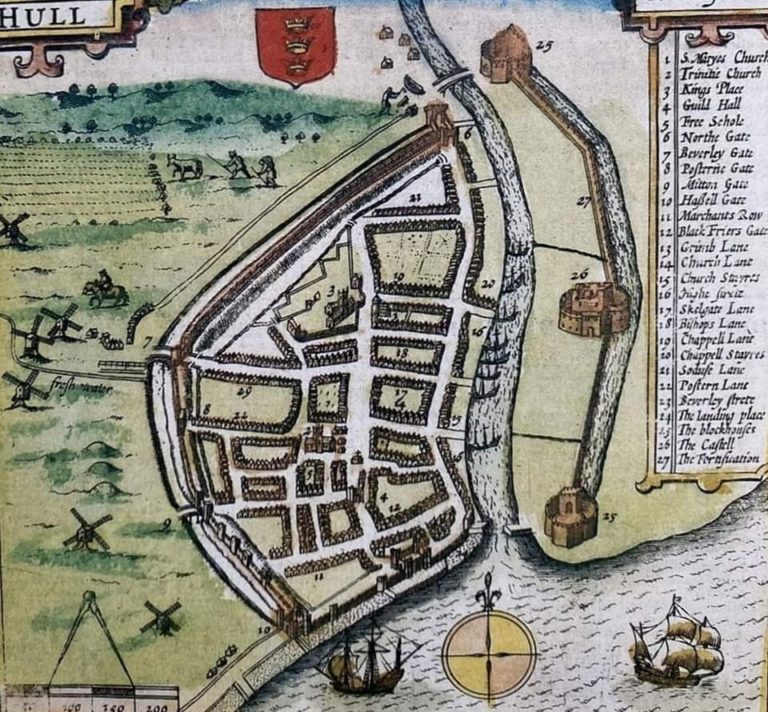 HULL
1 S. Maryes Church
2 Trinitie Church
3 Kings Place
4 Guild Hall
5 Free Schole
6 Northe Gate
7 Beverley Gate
8 Posterne Gate
9 Mitton Gate
10 Hassell Gate
11 Marchants Row
12 Black Friers Gate
13 Lane
14 Church Lane
15 Church Stayres
16 strete
17 Skelgate Lane
18 Bishops Lane
19 Chappell Lane
20 Chappell Stayres
21 Lane
22 Postern Lane
23 Beverley strete
24 The landing place
25 The blockhouses
26 The Castell
27 The Fortification
25
6
27
21
19
20
26
3
16
7
18
17
fresh water
29
8
22
15
2
4
12
25
9
11
10
100 150 200